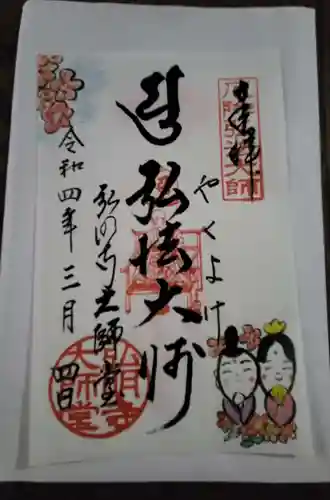 奉拝
厄除弘法大師
やくよけ
弘法大師
弘明寺大師堂
令和四年三月四日